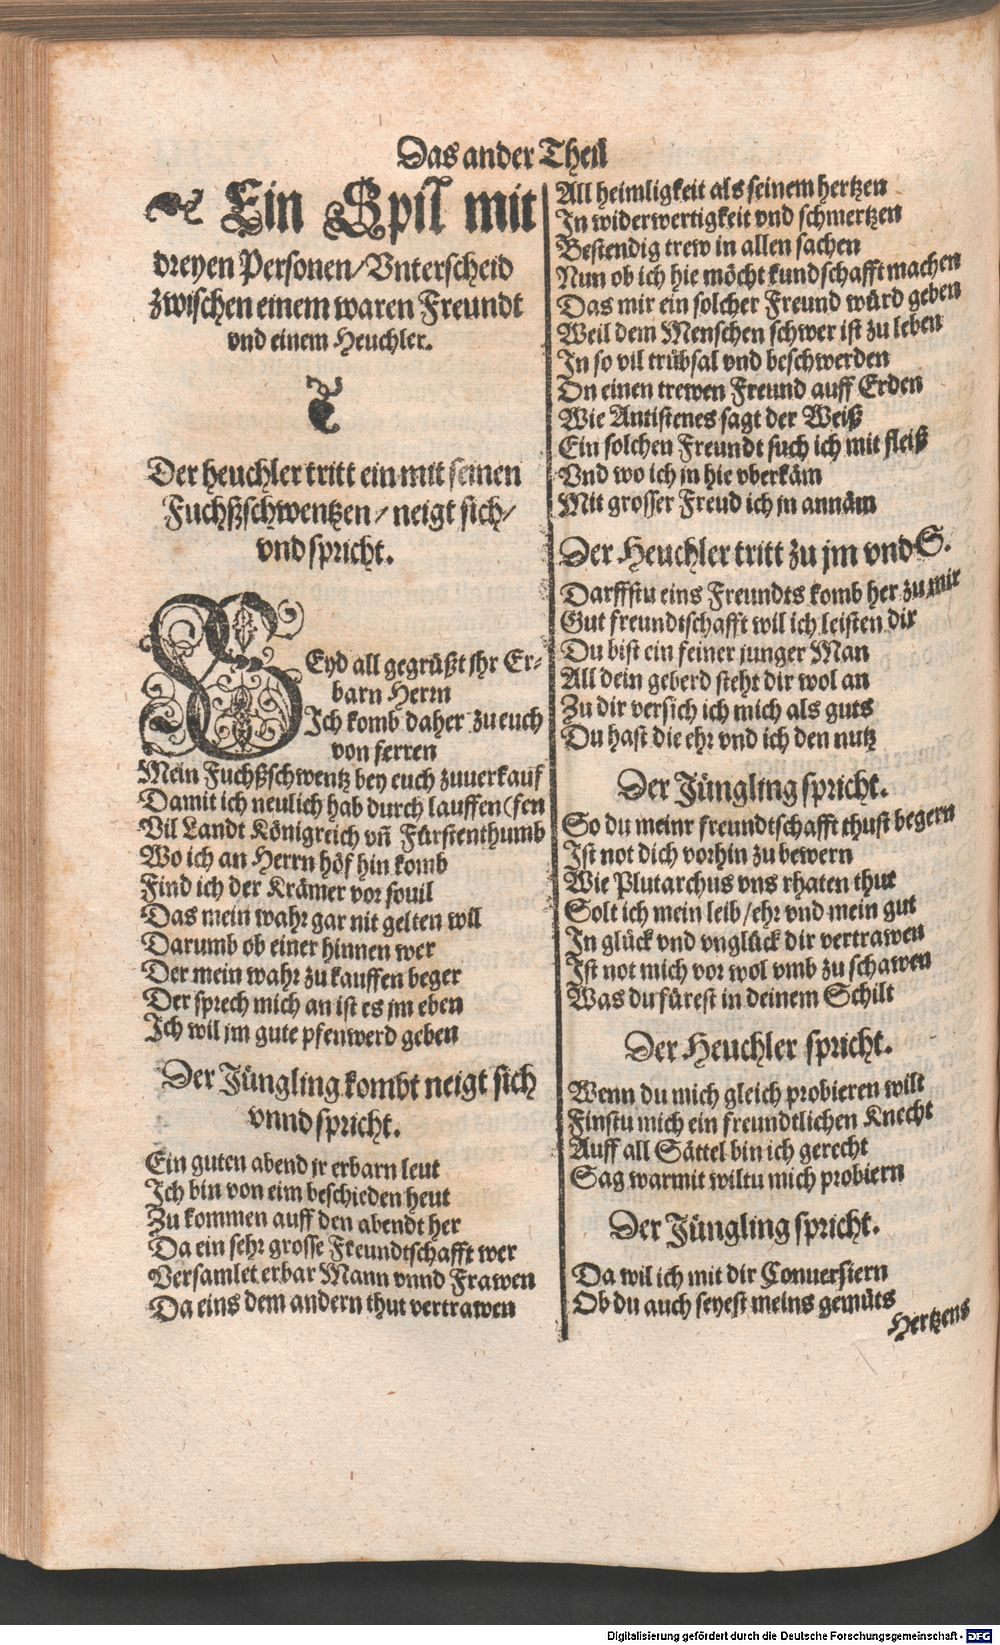 Das ander Theil
Ein Spil mit
dreyen Personen/Vnterscheid
zwischen einem waren Freundt
vnd einem Heuchler.
Der heuchler tritt ein mit seinen
Fuchßschwentzen/ neigt sich/
vnd spricht.
SEyd all gegrüßt jhr Er-
barn Herrn
Ich komb daher zu euch
von ferren
Mein Fuchßschwentz bey euch zuuerkauf
Damit ich neulich hab durch lauffen (fen
Vil Landt Königreich vn̄ Fürstenthumb
Wo ich an Herrn höf hin komb
Find ich der Krämer vor souil
Das mein wahr gar nit gelten wil
Darumb ob einer hinnen wer
Der mein wahr zu kauffen beger
Der sprech mich an ist es jm eben
Ich wil jm gute pfenwerd geben
Der Jüngling kombt neigt sich
vnnd spricht.
Ein guten abend jr erbarn leut
Ich bin von eim beschieden heut
Zu kommen auff den abendt her
Da ein sehr grosse Freundtschafft wer
Versamlet erbar Mann vnnd Frawen
Da eins dem andern thut vertrawen
All heimligkeit als seinem hertzen
In widerwertigkeit vnd schmertzen
Bestendig trew in allen sachen
Nun ob ich hie möcht kundschafft machen
Das mir ein solcher Freund würd geben
Weil dem Menschen schwer ist zu leben
In so vil trübsal vnd beschwerden
On einen trewen Freund auff Erden
Wie Antistenes sagt der Weiß
Ein solchen Freundt such ich mit fleiß
Vnd wo ich jn hie vberkäm
Mit grosser Freud ich jn annäm
Der Heuchler tritt zu jm vnd S.
Darffstu eins Freundts komb her zu mir
Gut freundtschafft wil ich leisten dir
Du bist ein feiner junger Man
All dein geberd steht dir wol an
Zu dir versich ich mich als guts
Du hast die ehr vnd ich den nutz
Der Jüngling spricht.
So du meinr freundtschafft thust begern
Ist not dich vorhin zu bewern
Wie Plutarchus vns rhaten thut
Solt ich mein leib/ehr vnd mein gut
In glück vnd vnglück dir vertrawen
Ist not mich vor wol vmb zu schawen
Was du fürest in deinem Schilt
Der Heuchler spricht.
Wenn du mich gleich probieren wilt
Finstu mich ein freundtlichen Knecht
Auff all Sättel bin ich gerecht
Sag warmit wiltu mich probiern
Der Jüngling spricht.
Da wil ich mit dir Conuersiern
Ob du auch seyest meins gemüts
Hertzens
Digitalisierung gefördert durch die Deutsche Forschungsgemeinschaft - DFG